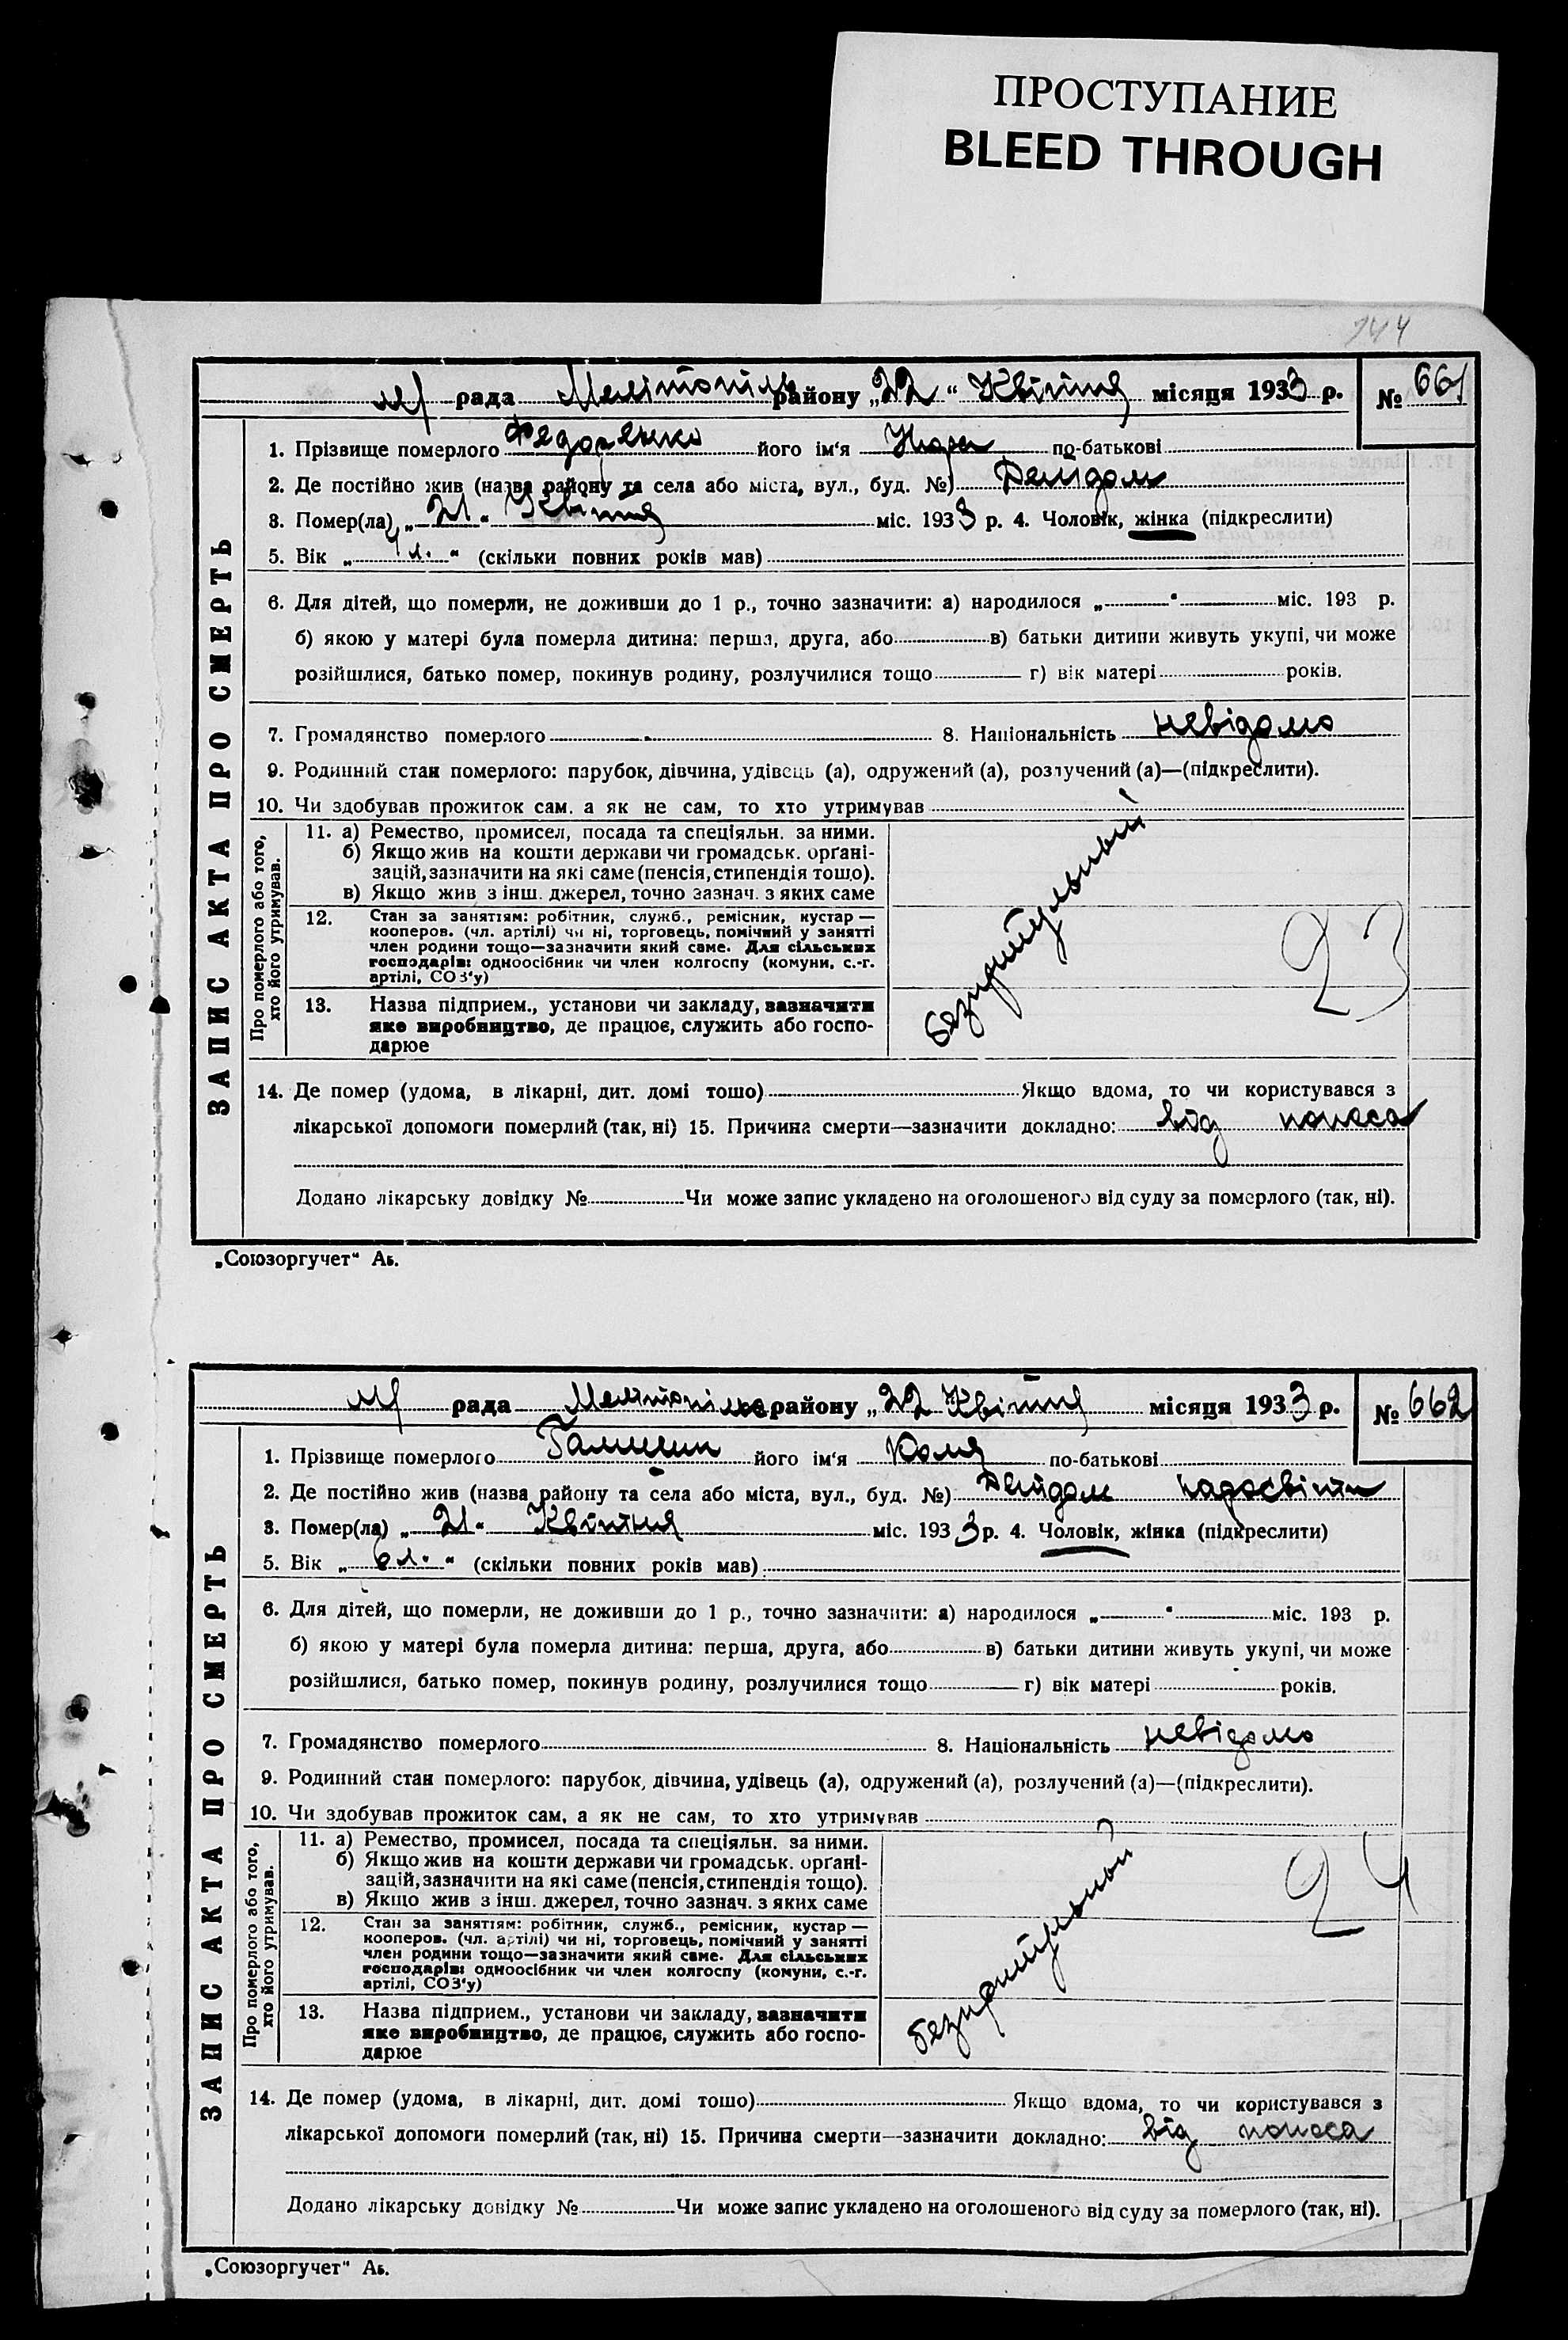 ПРОСТУПАНИЕ
BLEED THROUGH
744
М/ рада Мелітопіль району „22“ Квітня місяця 1933 р. № 661
ЗАПИС АКТА ПРО СМЕРТЬ
1. Прізвище померлого Федоренко його ім'я Нюра по-батькові
2. Де постійно жив (назва району та села або міста, вул., буд. №) Дейдом
3. Помер(ла) „21“ Квітня міс. 1933 р. 4. Чоловік, жінка (підкреслити)
5. Вік „4 л.“ (скільки повних років мав)
6. Для дітей, що померли, не доживши до 1 р., точно зазначити: а) народилося „ “ міс. 193 р.
б) якою у матері була померла дитина: перша, друга, або в) батьки дитини живуть укупі, чи може
розійшлися, батько помер, покинув родину, розлучилися тощо г) вік матері років.
7. Громадянство померлого 8. Національність невідомо
9. Родинний стан померлого: парубок, дівчина, удівець (а), одружений (а), розлучений (а)—(підкреслити).
10. Чи здобував прожиток сам, а як не сам, то хто утримував
Про померлого або того, хто його утримував.
11. а) Ремество, промисел, посада та спеціяльн. за ними.
б) Якщо жив на кошти держави чи громадськ. орґані-
зацій, зазначити на які саме (пенсія, стипендія тощо).
в) Якщо жив з інш. джерел, точно зазнач. з яких саме
12. Стан за заняттям: робітник, служб., ремісник, кустар —
кооперов. (чл. артілі) чи ні, торговець, помічний у занятті
член родини тощо—зазначити який саме. Для сільських
господарів: одноосібник чи член колгоспу (комуни, с.-г.
артілі, СОЗ'у)
13. Назва підприєм., установи чи закладу, зазначити
яке виробництво, де працює, служить або госпо-
дарює
безпритульний
23
14. Де помер (удома, в лікарні, дит. домі тощо) Якщо вдома, то чи користувався з
лікарської допомоги померлий (так, ні) 15. Причина смерти—зазначити докладно: від поноса
Додано лікарську довідку № Чи може запис укладено на оголошеного від суду за померлого (так, ні).
„Союзоргучет“ Аь.
М/ рада Мелітопільс району „22 Квітня місяця 1933 р. № 662
ЗАПИС АКТА ПРО СМЕРТЬ
1. Прізвище померлого його ім'я Коля по-батькові
2. Де постійно жив (назва району та села або міста, вул., буд. №) Дейдом
3. Помер(ла) „21“ Квітня міс. 1933 р. 4. Чоловік, жінка (підкреслити)
5. Вік „6 л.“ (скільки повних років мав)
6. Для дітей, що померли, не доживши до 1 р., точно зазначити: а) народилося „ “ міс. 193 р.
б) якою у матері була померла дитина: перша, друга, або в) батьки дитини живуть укупі, чи може
розійшлися, батько помер, покинув родину, розлучилися тощо г) вік матері років.
7. Громадянство померлого 8. Національність невідомо
9. Родинний стан померлого: парубок, дівчина, удівець (а), одружений (а), розлучений (а)—(підкреслити).
10. Чи здобував прожиток сам, а як не сам, то хто утримував
Про померлого або того, хто його утримував.
11. а) Ремество, промисел, посада та спеціяльн. за ними.
б) Якщо жив на кошти держави чи громадськ. орґані-
зацій, зазначити на які саме (пенсія, стипендія тощо).
в) Якщо жив з інш. джерел, точно зазнач. з яких саме
12. Стан за заняттям: робітник, служб., ремісник, кустар —
кооперов. (чл. артілі) чи ні, торговець, помічний у занятті
член родини тощо—зазначити який саме. Для сільських
господарів: одноосібник чи член колгоспу (комуни, с.-г.
артілі, СОЗ'у)
13. Назва підприєм., установи чи закладу, зазначити
яке виробництво, де працює, служить або госпо-
дарює
безпритульний
24
14. Де помер (удома, в лікарні, дит. домі тощо) Якщо вдома, то чи користувався з
лікарської допомоги померлий (так, ні) 15. Причина смерти—зазначити докладно: від поноса
Додано лікарську довідку № Чи може запис укладено на оголошеного від суду за померлого (так, ні).
„Союзоргучет“ Аь.